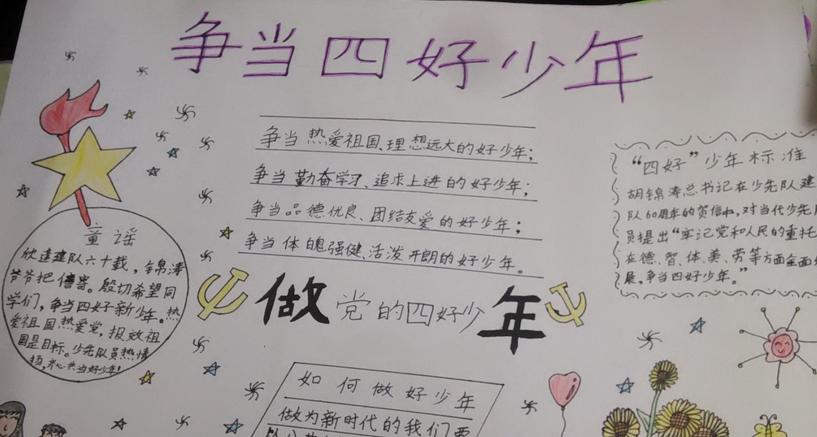 争当四好少年
争当热爱祖国、理想远大的好少年；
争当勤奋学习、追求上进的好少年；
争当品德优良、团结友爱的好少年；
争当体魄强健、活泼开朗的好少年。
童谣
欣逢建队六十载，锦涛
爷爷把信寄。殷切希望同
学们，争当四好新少年。热
爱祖国热爱党，报效祖
国是目标。少先队员热情
共当好少年！
做党的四好少年
“四好”少年标准
胡锦涛总书记在少先队建
队60周年的贺信中，对当代少先
员提出“牢记党和人民的重托
在德、智、体、美、劳等方面全面
展，争当四好少年。”
如何做好少年
做为新时代的我们要